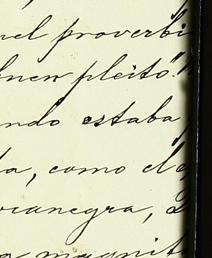 nel proverbi
bnen pleito".
ndo estaba
da, como el
ocanegra,
magnit